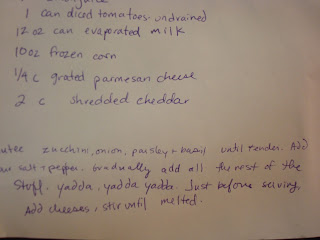 1 can diced tomatoes- undrained
12 oz can evaporated milk
10 oz frozen corn
1/4 c grated parmesan cheese
2 c shredded cheddar
zucchini, onion, parsley + basil until tender. Add
salt + pepper. Gradually add all the rest of the
stuff. yadda, yadda yadda. Just before serving,
Add cheeses, stir until melted.